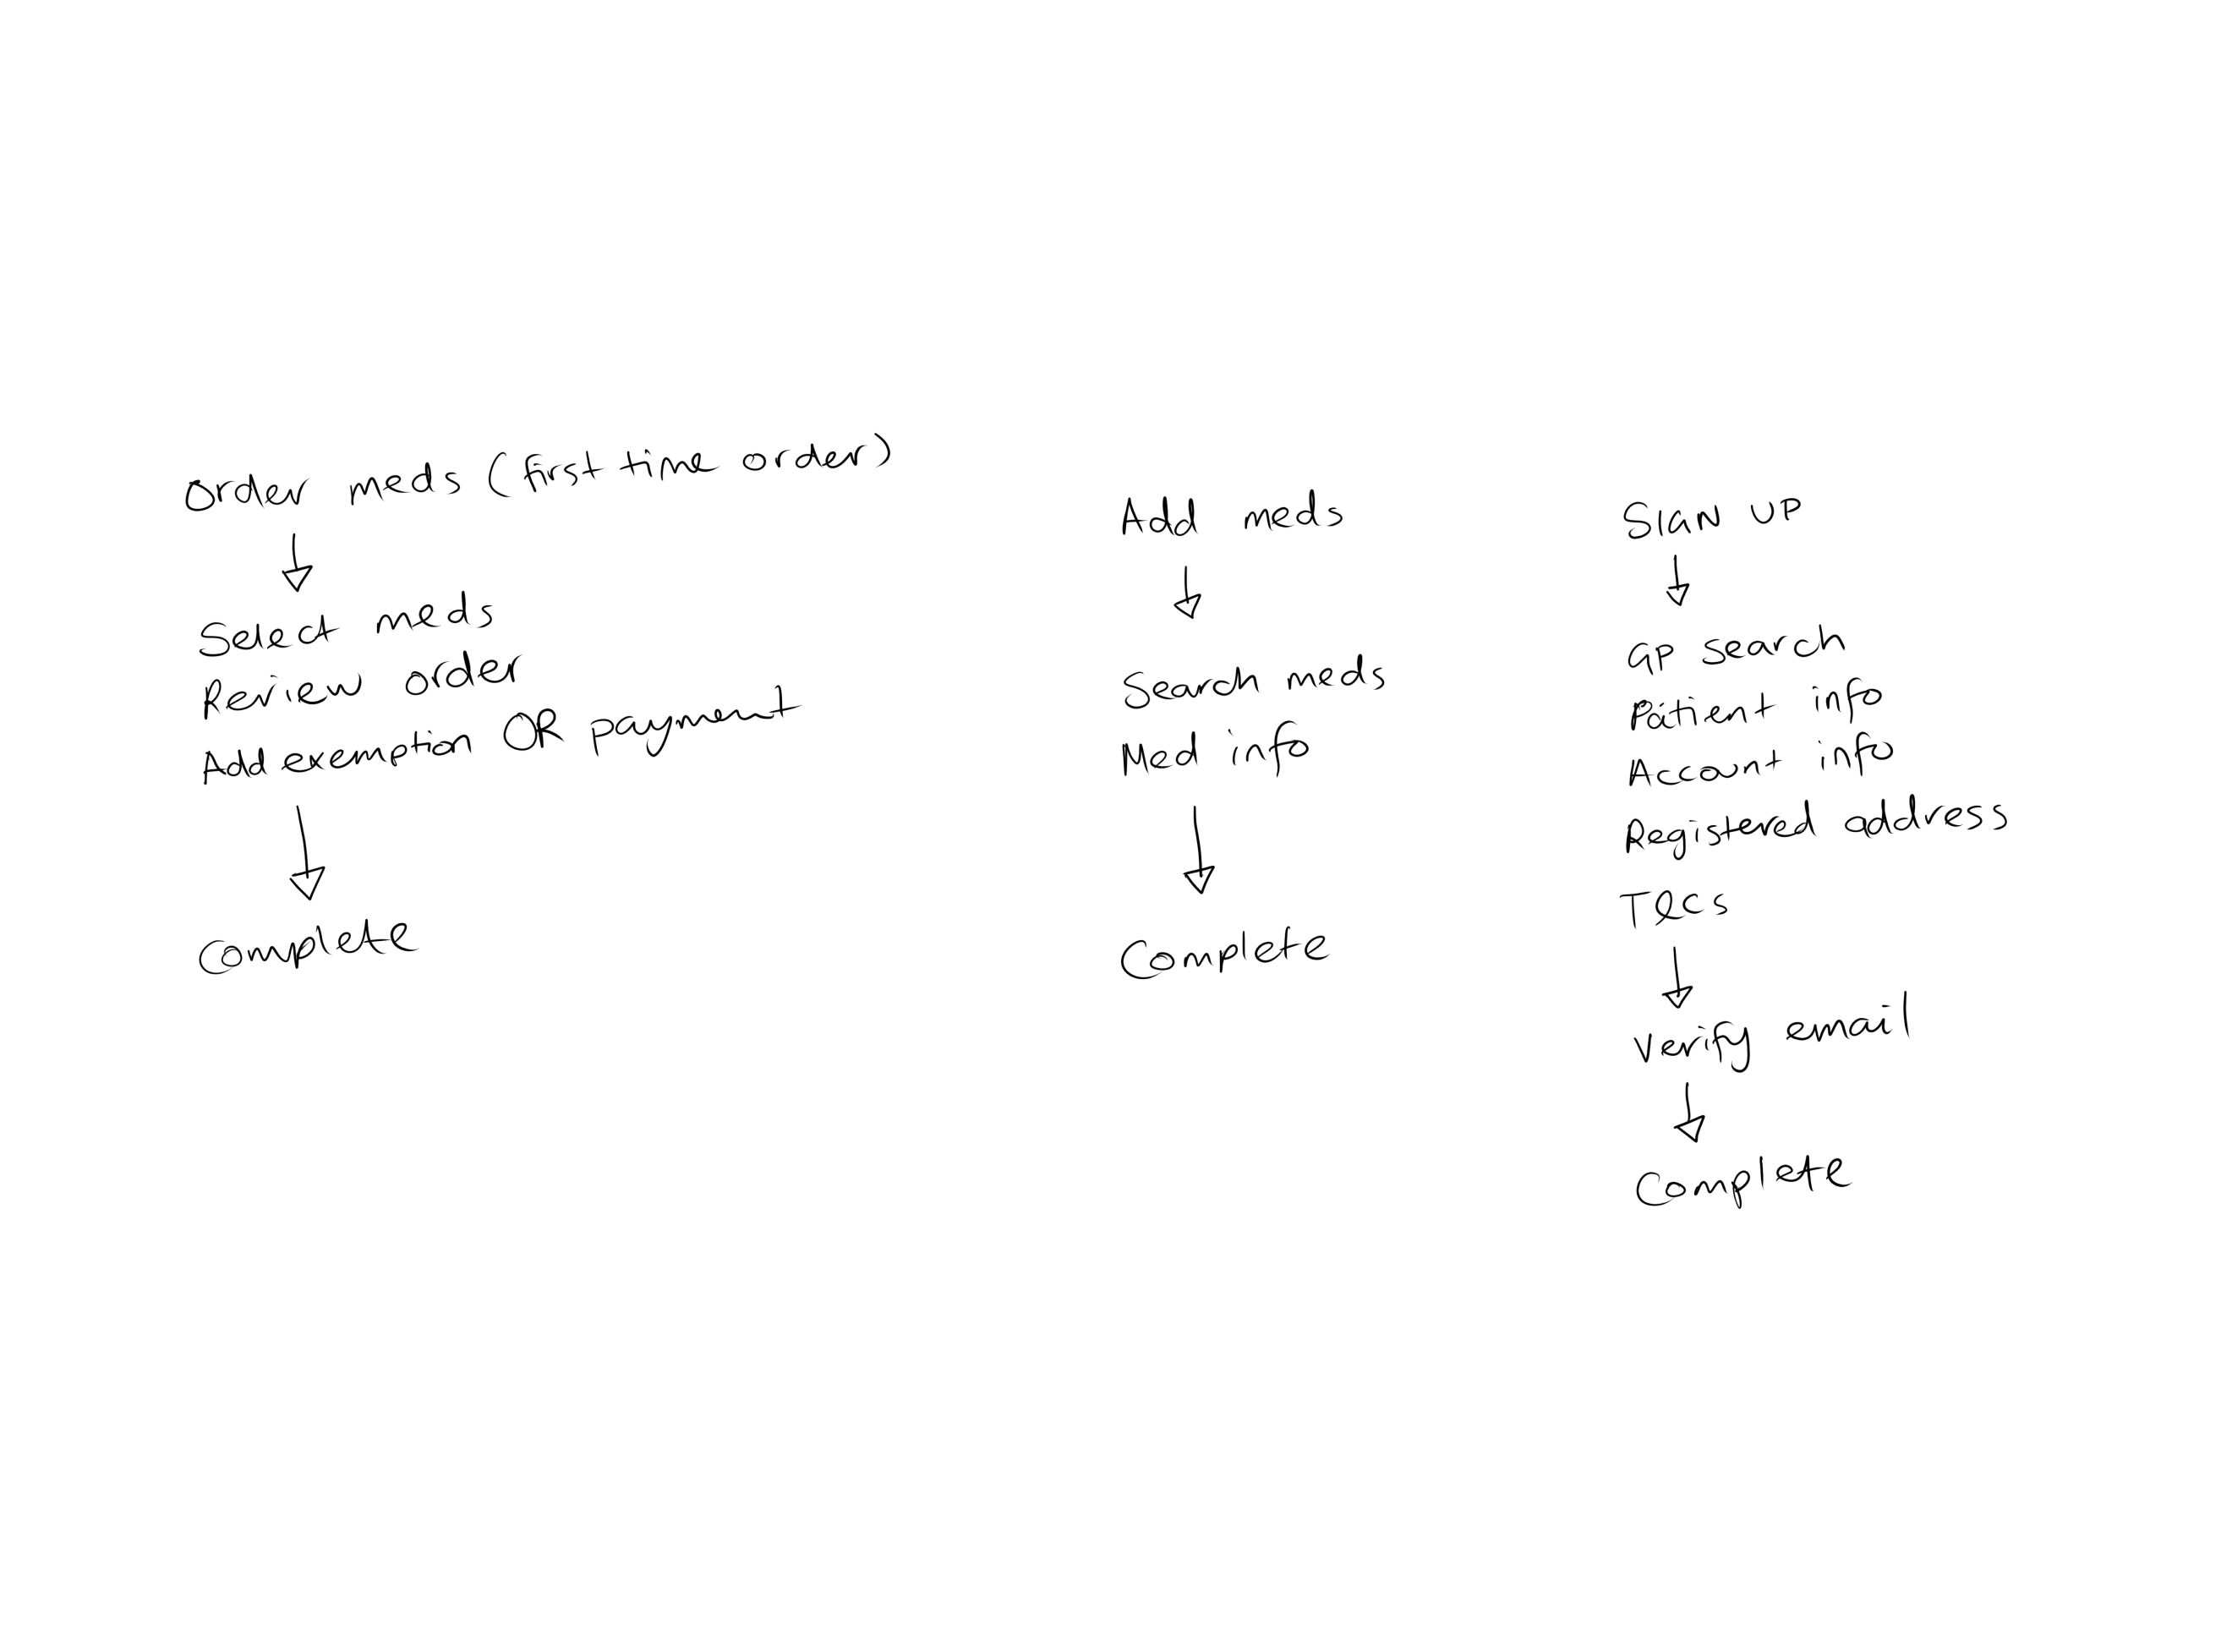 Order meds (first time order)
Select meds
Review order
Add exemption OR payment
Complete
Add meds
Search meds
Med info
Complete
Sign up
GP search
Patient info
Account info
Registered address
T&Cs
Verify email
Complete